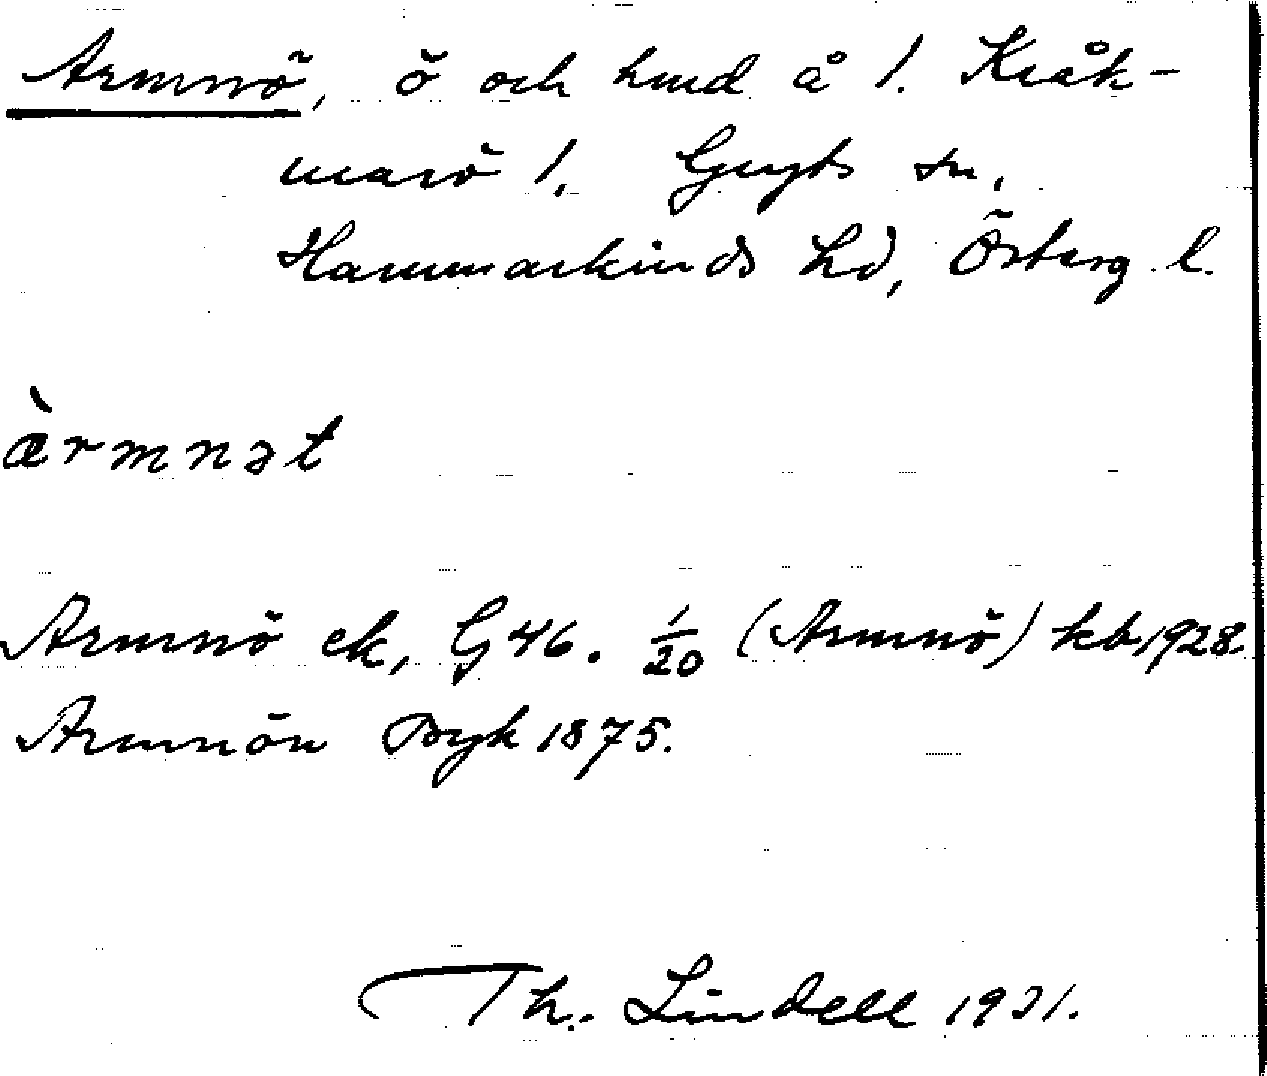 Armnö, ö och hmd å 1. Kråk-
marö 1. Gryts sn,
Hammarkinds hd, Österg. l.
ærmnət
Armnö ek, G 46. 1/20 (Armnö) kb 1928.
Armnön Byk 1875.
Th. Lindell 1931.